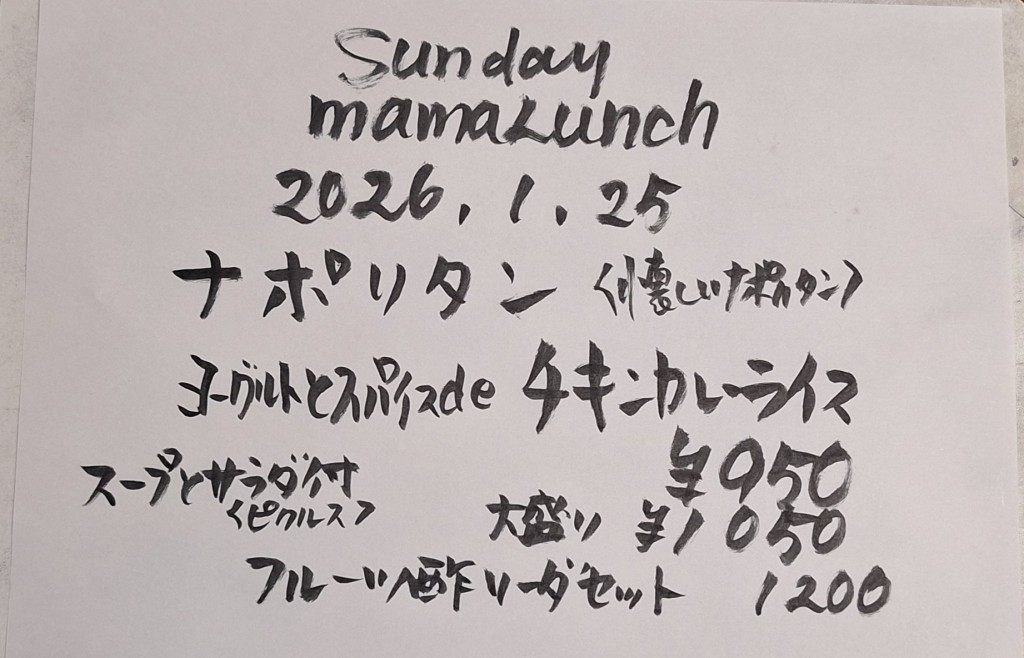 Sunday
mamaLunch
2026.1.25
ナポリタン 〈懐しいナポリタン〉
ヨーグルトとスパイスde チキンカレーライス
¥950
スープとサラダ付
〈ピクルス〉
大盛り ¥1050
フルーツ酢ソーダセット 1200